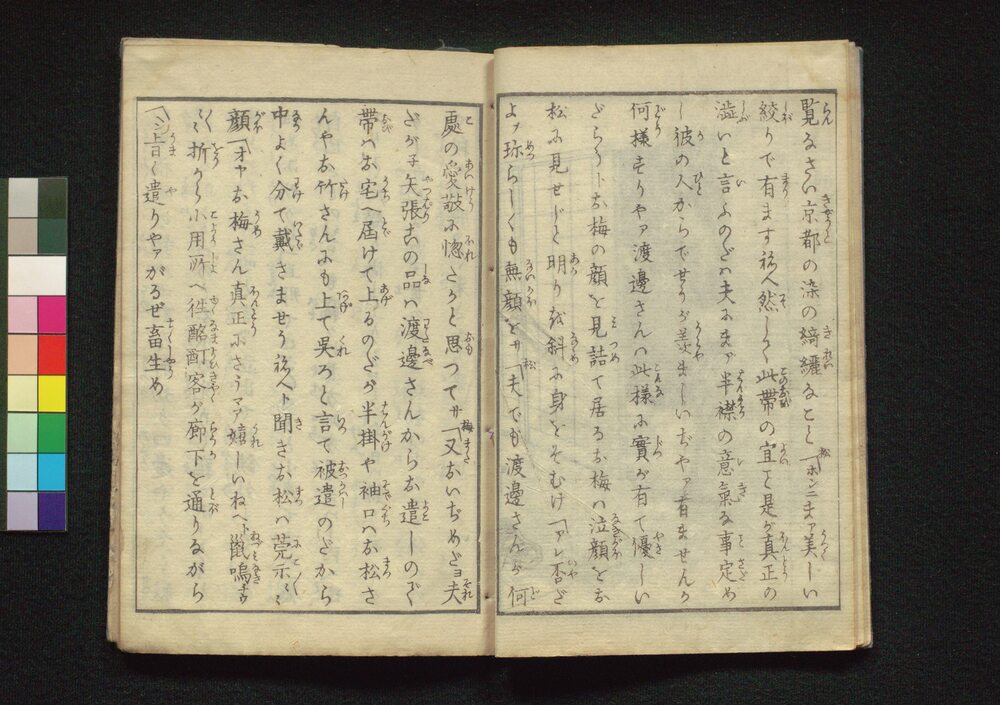 覧なさい京都の染の綺纚なこと「ホンニまア美しい
絞りで有ます子へ然して此帯の宜こと是が真正の
澁いと言ふのだハ夫にまア半襟の意氣な事定め
し彼の人からでせうが羨ましいぢやア有ませんか
何様すりやア渡邊さんハ此様に實が有て優しい
だらうトお梅の顔を見詰て居るお梅ハ泣顔をお
松に見せじと明りを斜に身をそむけ「アレ否だ
よヲ珎らしくも無顔をサ「夫でも渡邊さんが何
處の愛敬に惚たかと思つてサ「又おいぢめだヨ夫
だが子矢張右の品ハ渡邊さんからお遣しので
帯ハお宅へ届けて上るのだが半掛や袖口ハお松さ
んやお竹さんにも上て呉ろと言て被遣のだから
中よく分て戴きませう子へト聞きお松ハ莞示〻
顔「オヤお梅さん真正にさうマア嬉しいねへト鼠鳴を
〻く折から小用所へ徃酩酊客が廊下を通りながら
「ヘン旨く遣りやアがるぜ畜生め